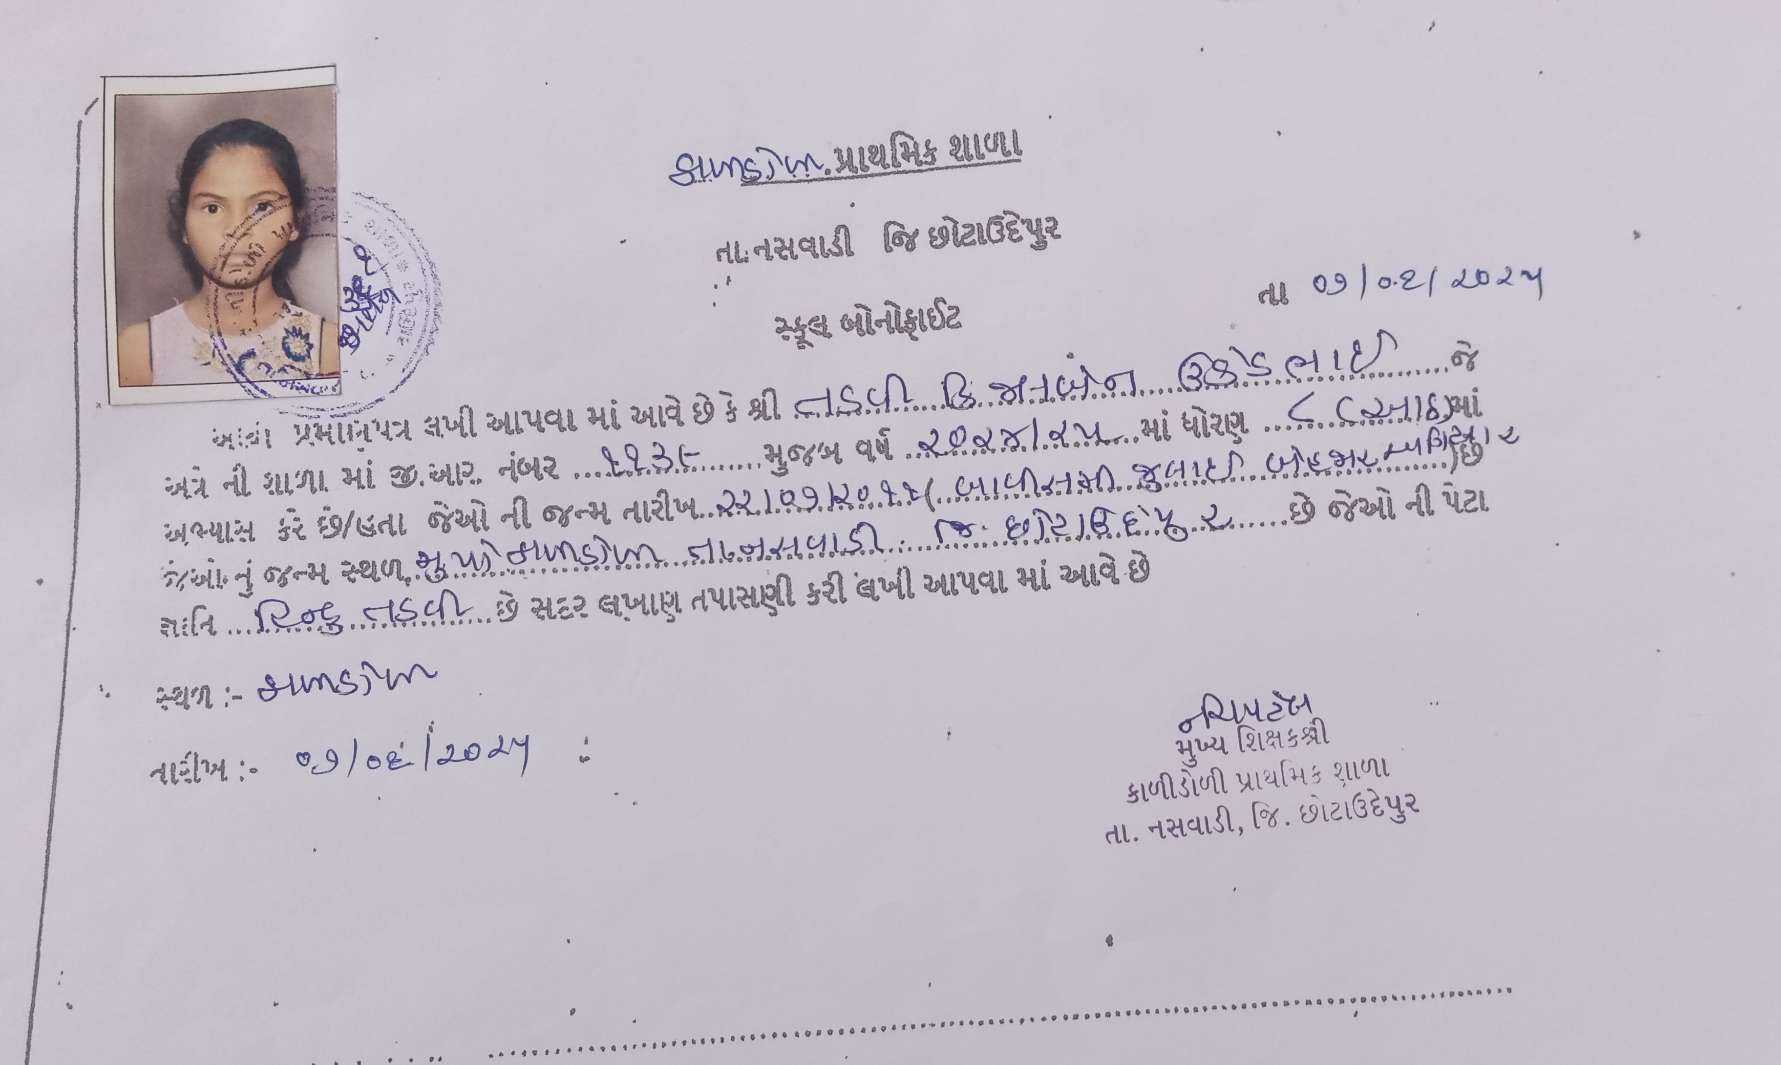 કાળીડોળી પ્રાથમિક શાળા
તા.નસવાડી જિ છોટાઉદેપુર
તા ૦૭/૦૬/૨૦૨૫
સ્કૂલ બોનોફાઈટ
આથી પ્રમાણિપત્ર લખી આપવા માં આવે છે કે શ્રી તડવી કિંજલબેન જે
અત્રે ની શાળા માં જી.આર. નંબર ૧૧૩૯ મુજબ વર્ષ ૨૦૨૪/૨૫ માં ધોરણ ૮ (આઠ)માં
અભ્યાસ કરે છે/હતા જેઓ ની જન્મ તારીખ ૨૨/૦૭/૨૦૧૧( બાવીસમી જુલાઈ બેહજાર અગિયાર )છે
જેઓ નું જન્મ સ્થળ મુ.પો કાળીડોળી તા.નસવાડી જિ. છોટાઉદેપુર છે જેઓ ની પેટા
જ્ઞાતિ હિન્દુ તડવી છે સદર લખાણ તપાસણી કરી લખી આપવા માં આવે છે
સ્થળ :- કાળીડોળી
તારીખ :- ૦૭/૦૬/૨૦૨૫
મુખ્ય શિક્ષકશ્રી
કાળીડોળી પ્રાથમિક શાળા
તા. નસવાડી, જિ. છોટાઉદેપુર